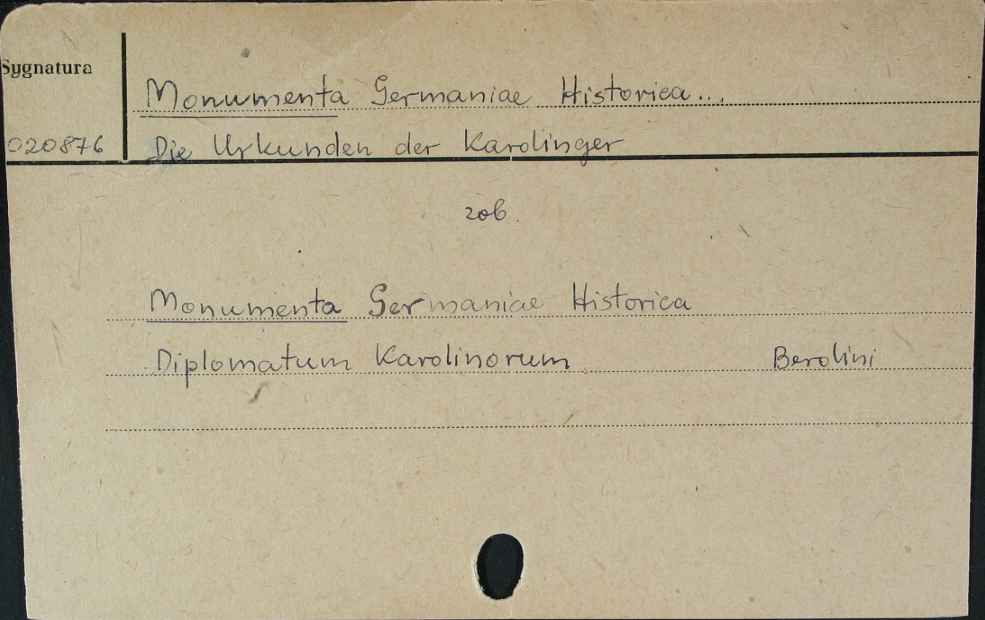 Sygnatura
Monumenta Germaniae Historica...
020876
Die Urkunden der Karolinger
zob.
Monumenta Germaniae Historica
Diplomatum Karolinorum Berolini